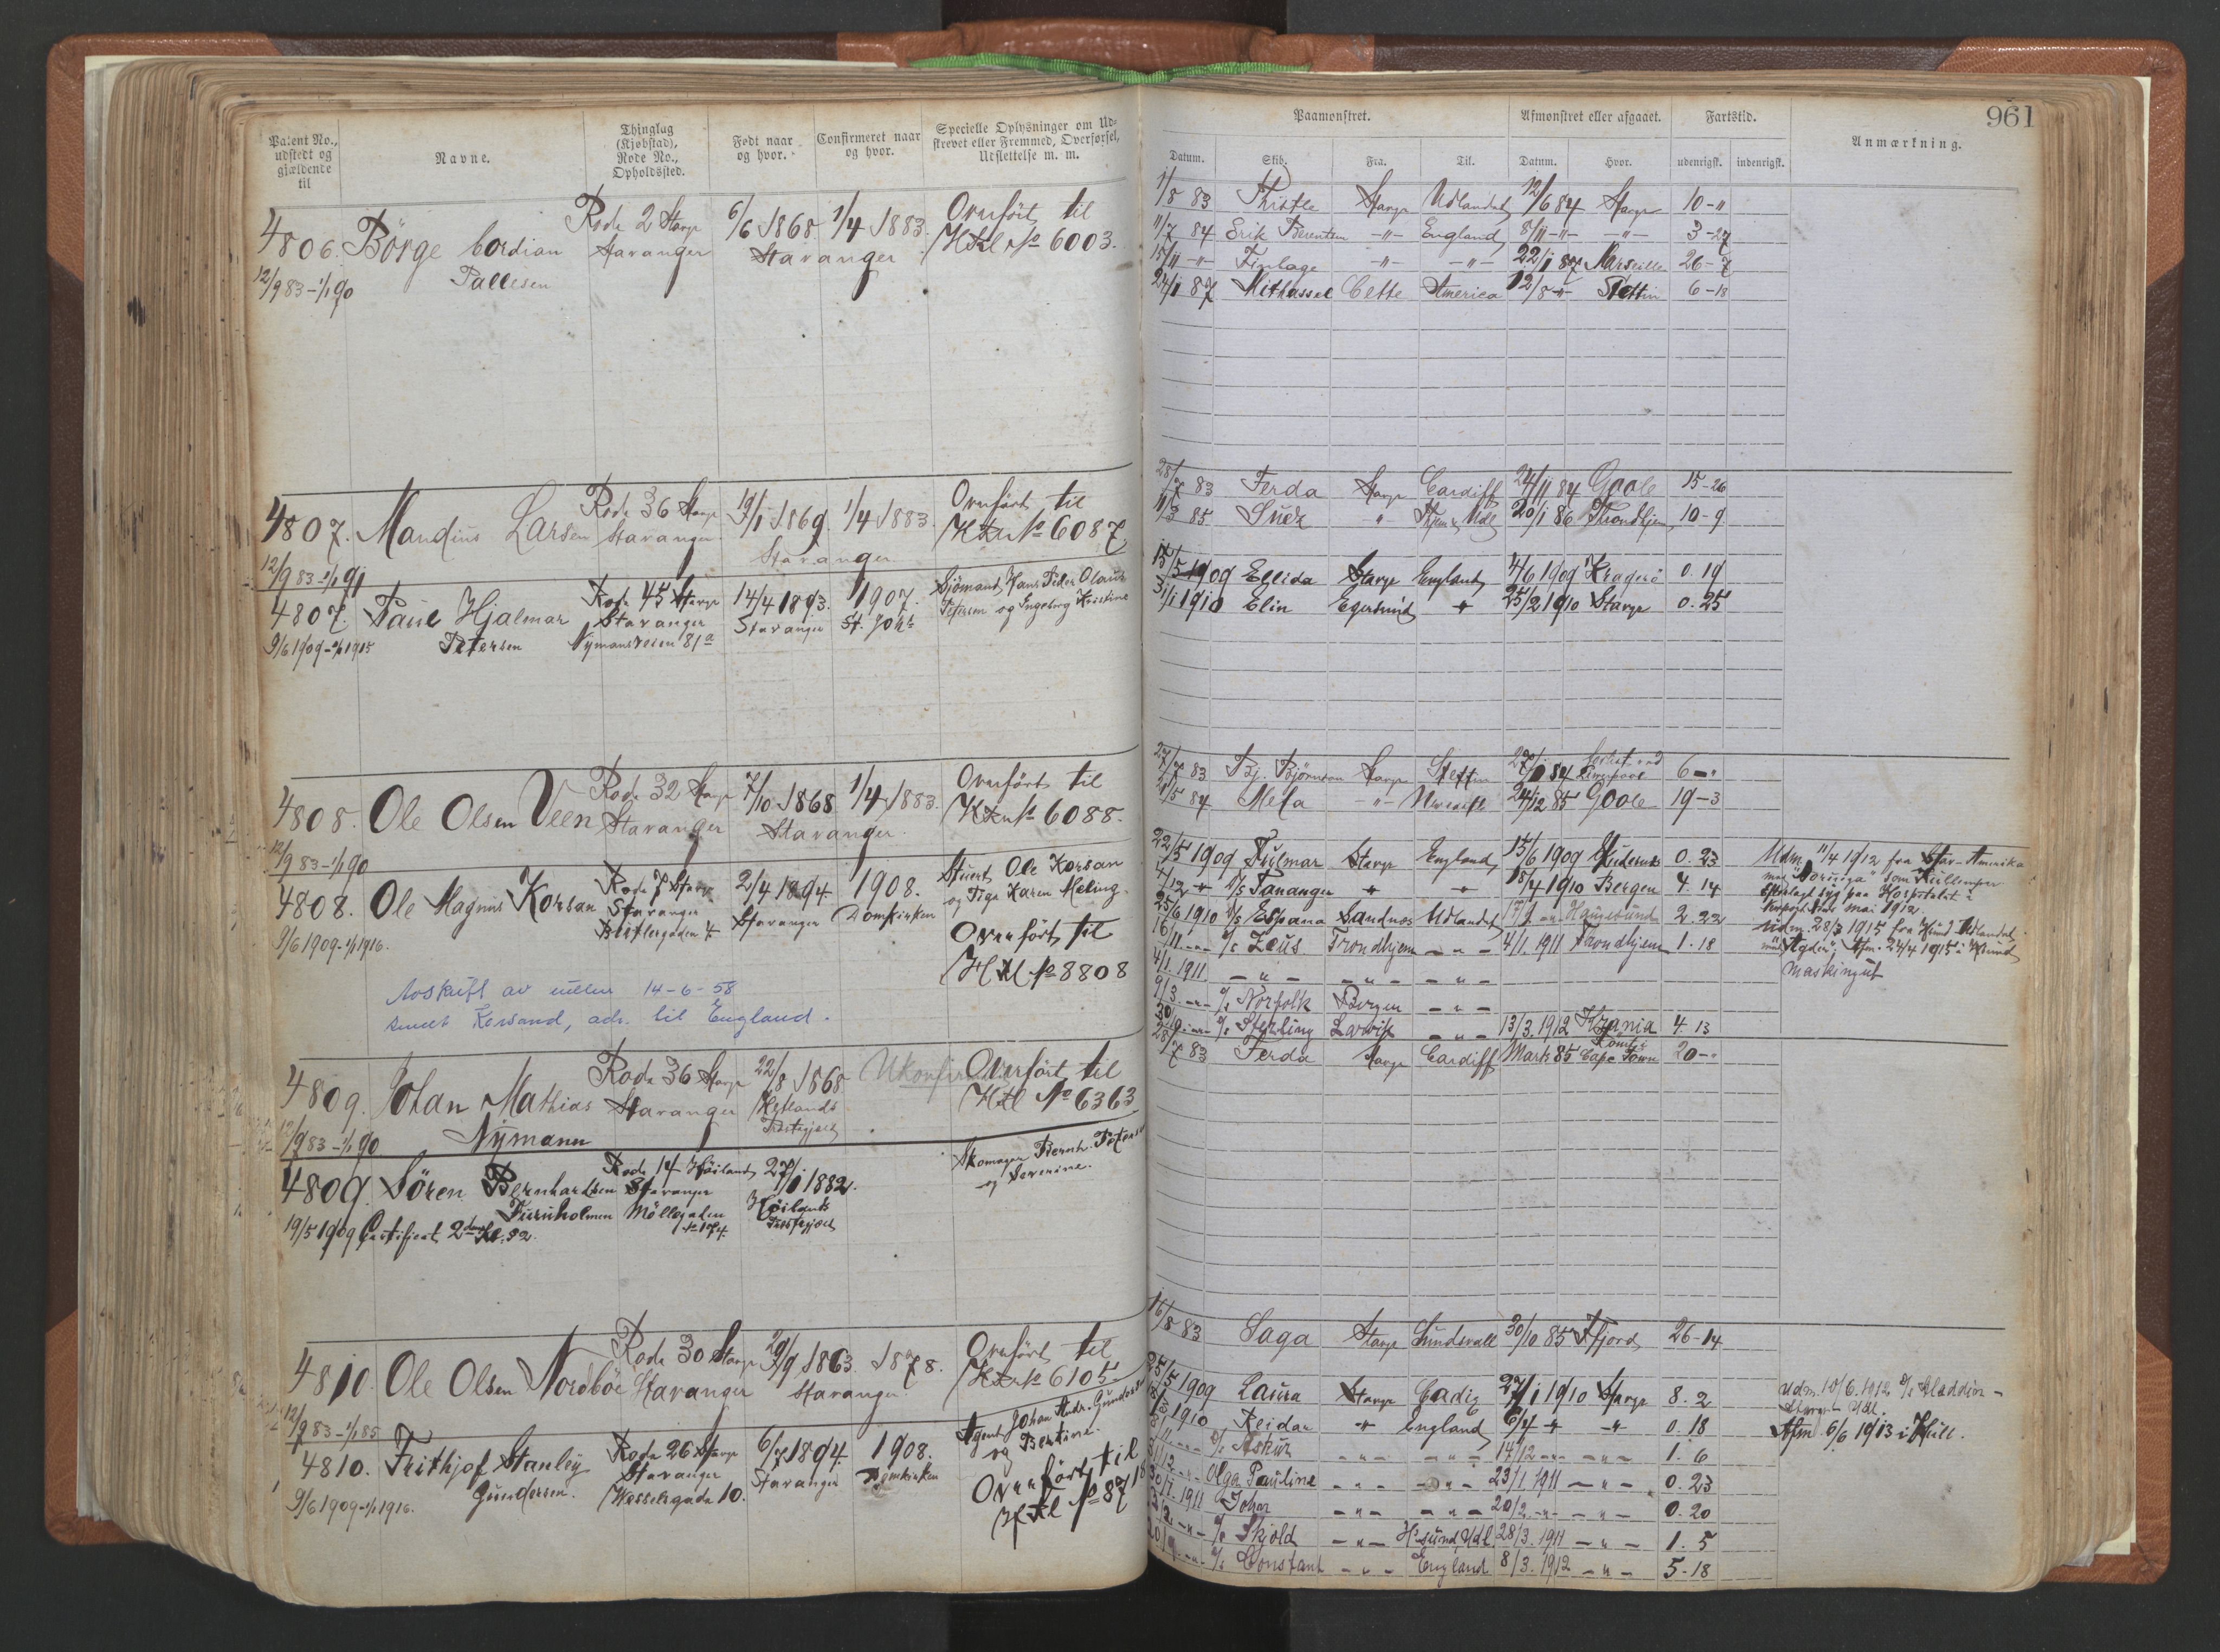 Patent No., udstedt og gjældende til
Navne.
Thinglag (Kjøbstad), Rode No., Opholdssted.
Født naar og hvor.
Confirmeret naar og hvor.
Specielle Oplysninger om Udskrevet eller Fremmed, Overførsel, Udslettelse m. m.
4806. Börge Cordian Rode 2 Stavgr 6/6 1868 1/4 1883. Overført til
Pallesen Stavanger Stavanger HKl No 6003.
12/9 83 - 1/1 90
4807. Mandius Larsen Rode 36 Stavgr 19/1 1869. 1/4 1883. Overført til
Stavanger Stavanger No 6087.
12/9 83 - 1/1 91
4807. Paul Hjalmar Rode 45 Stavgr 14/4 1893. 1907. Sjömand Hans Peder Olaus
Petersen Stavanger Stavanger St. Johs Petersen og Ingeborg Kristine
9/6 1909 - 1/1 1915 Nymansveien 81a
4808. Ole Olsen Veen Rode 32 Stavgr 7/10 1868 1/4 1883. Overført til
Stavanger Stavanger. No 6088.
12/9 83 - 1/1 90
4808. Ole Magnus Korsan Rode 7 Stavgr 2/4 1894. 1908. Stuert Ole Korsan
Stavanger Stavanger Domkirken og Karen Meling.
9/6 1909 - 1/1 1916. Overført til
HKl No 8808
Avskrift av rullen 14-6-58
sendt Korsand, adr. til England.
4809. Johan Mathias Rode 36 Stavgr 22/8 1868 Ukonfirm Overført til
Nÿmann Stavanger Hetlands Præstegjæld HKl No 6363
12/9 83 - 1/1 90
4809. Sören Bernhardsen Rode 14 Höiland 27/1 1882. Skomager Bernh.
Furuholmen Stavanger Höilands Præstegjæld og Severine.
Möllegaden No 174.
19/5 1909 Certificat 2den Kl. 52.
4810. Ole Olsen Nordböe Rode 30 Stavgr 29/9 1863. 1878. Overført til
Stavanger Stavanger No 6105.
12/9 83 - 1/1 85
4810. Frithjof Stanley Rode 26 Stavgr 6/7 1894. 1908. Agent Johan Andr. Gunders
Gundersen. Stavanger Stavanger Domkirken og Bertine.
9/6 1909 - 1/1 1916. Wesselsgade 10. Overført til
HKl No 8718
961
Paamonstret.
Afmonstret eller afgaaet.
Fartstid.
Anmærkning.
Datum. Skib. Fra. Til. Datum. Hvor. udenrigst. indenrigst.
1/8 83 Thistle Stavgr Udlandet 12/6 84 Stavgr 10-"
11/7 84 Erik Berentsen -"- England 8/11 -"- -"- 3-27
15/11 -"- Finlage -"- -"- 22/1 87 Marseille 26-7
24/1 87 Mithassel Cette America 12/8 -"- Stettin 6-18
28/7 83 Ferda Stavgr Cardiff 24/11 84 Goole 15-26
11/3 85 Suez " 20/1 86 Trondhjem 10-9
15/5 1909 Ellida Stavgr England 4/6 1909 Kragerö 0.19
31/1 1910 Elin Egersund " 25/2 1910 Stavgr 0.25
27/7 83 Bj. Björnson Stavgr Stettin 27/1 84 Forlist ved Liverpool 6-"
21/5 84 Meta -"- 24/12 85 Goole 19-3
22/5 1909 Fulmar Stavgr England 15/6 1909 0.23
4/12 " S/S Tananger " " 15/4 1910 Bergen 4.14
25/6 1910 S/S Espana Sandnes Udlandet 17/9 -"- Haugesund 2.22
16/11 -"- S/S Zeus Trondhjem -"- 4/1. 1911 Trondhjem 1.18
4/1. 1911 -"- -"- -"-
9/3. -"- S/S Norfolk Bergen -"-
30/10 -"- S/S Sterling Larvik -"- 13/3. 1912 Krania 4.13
Udm. 11/4 1912 fra Stav - Amerika
med "Noruega" som Kullemper
Efterlagt syg paa Hospitalet i
mai 1912.
Udm. 28/3 1915 fra Udlandet
med "Agder"; Afm. 24/4 1915 i
Maskingut
28/7 83 Ferda Stavgr Cardiff Marts 85 Römt i Cape Town 20-"
16/8 83 Saga Stavgr Sundsvall 30/10 85 Ffjord 26-14
25/5 1909 Laura Stavgr Cadiz 27/1 1910 Stavgr 8.2
1910 Reidar " England 6/4 " " 0.18
-"- S/S Askur -"- -"- 14/12 -"- -"- 1.6
-"- Olga Pauline -"- -"- 23/1 1911 -"- 0.23
1911 Johan -"- -"- 20/2 -"- -"- 0.20
-"- S/S Skjold -"- H'sund, Udl. 28/3. 1911 -"- 1.5
20/9 -"- S/S Constant -"- England 8/3. 1912 -"- 5.18
Udm. 10/6. 1912 S/S Aladdin -
Stavgr - Udl.
Afm 6/6 1913 i Hull.